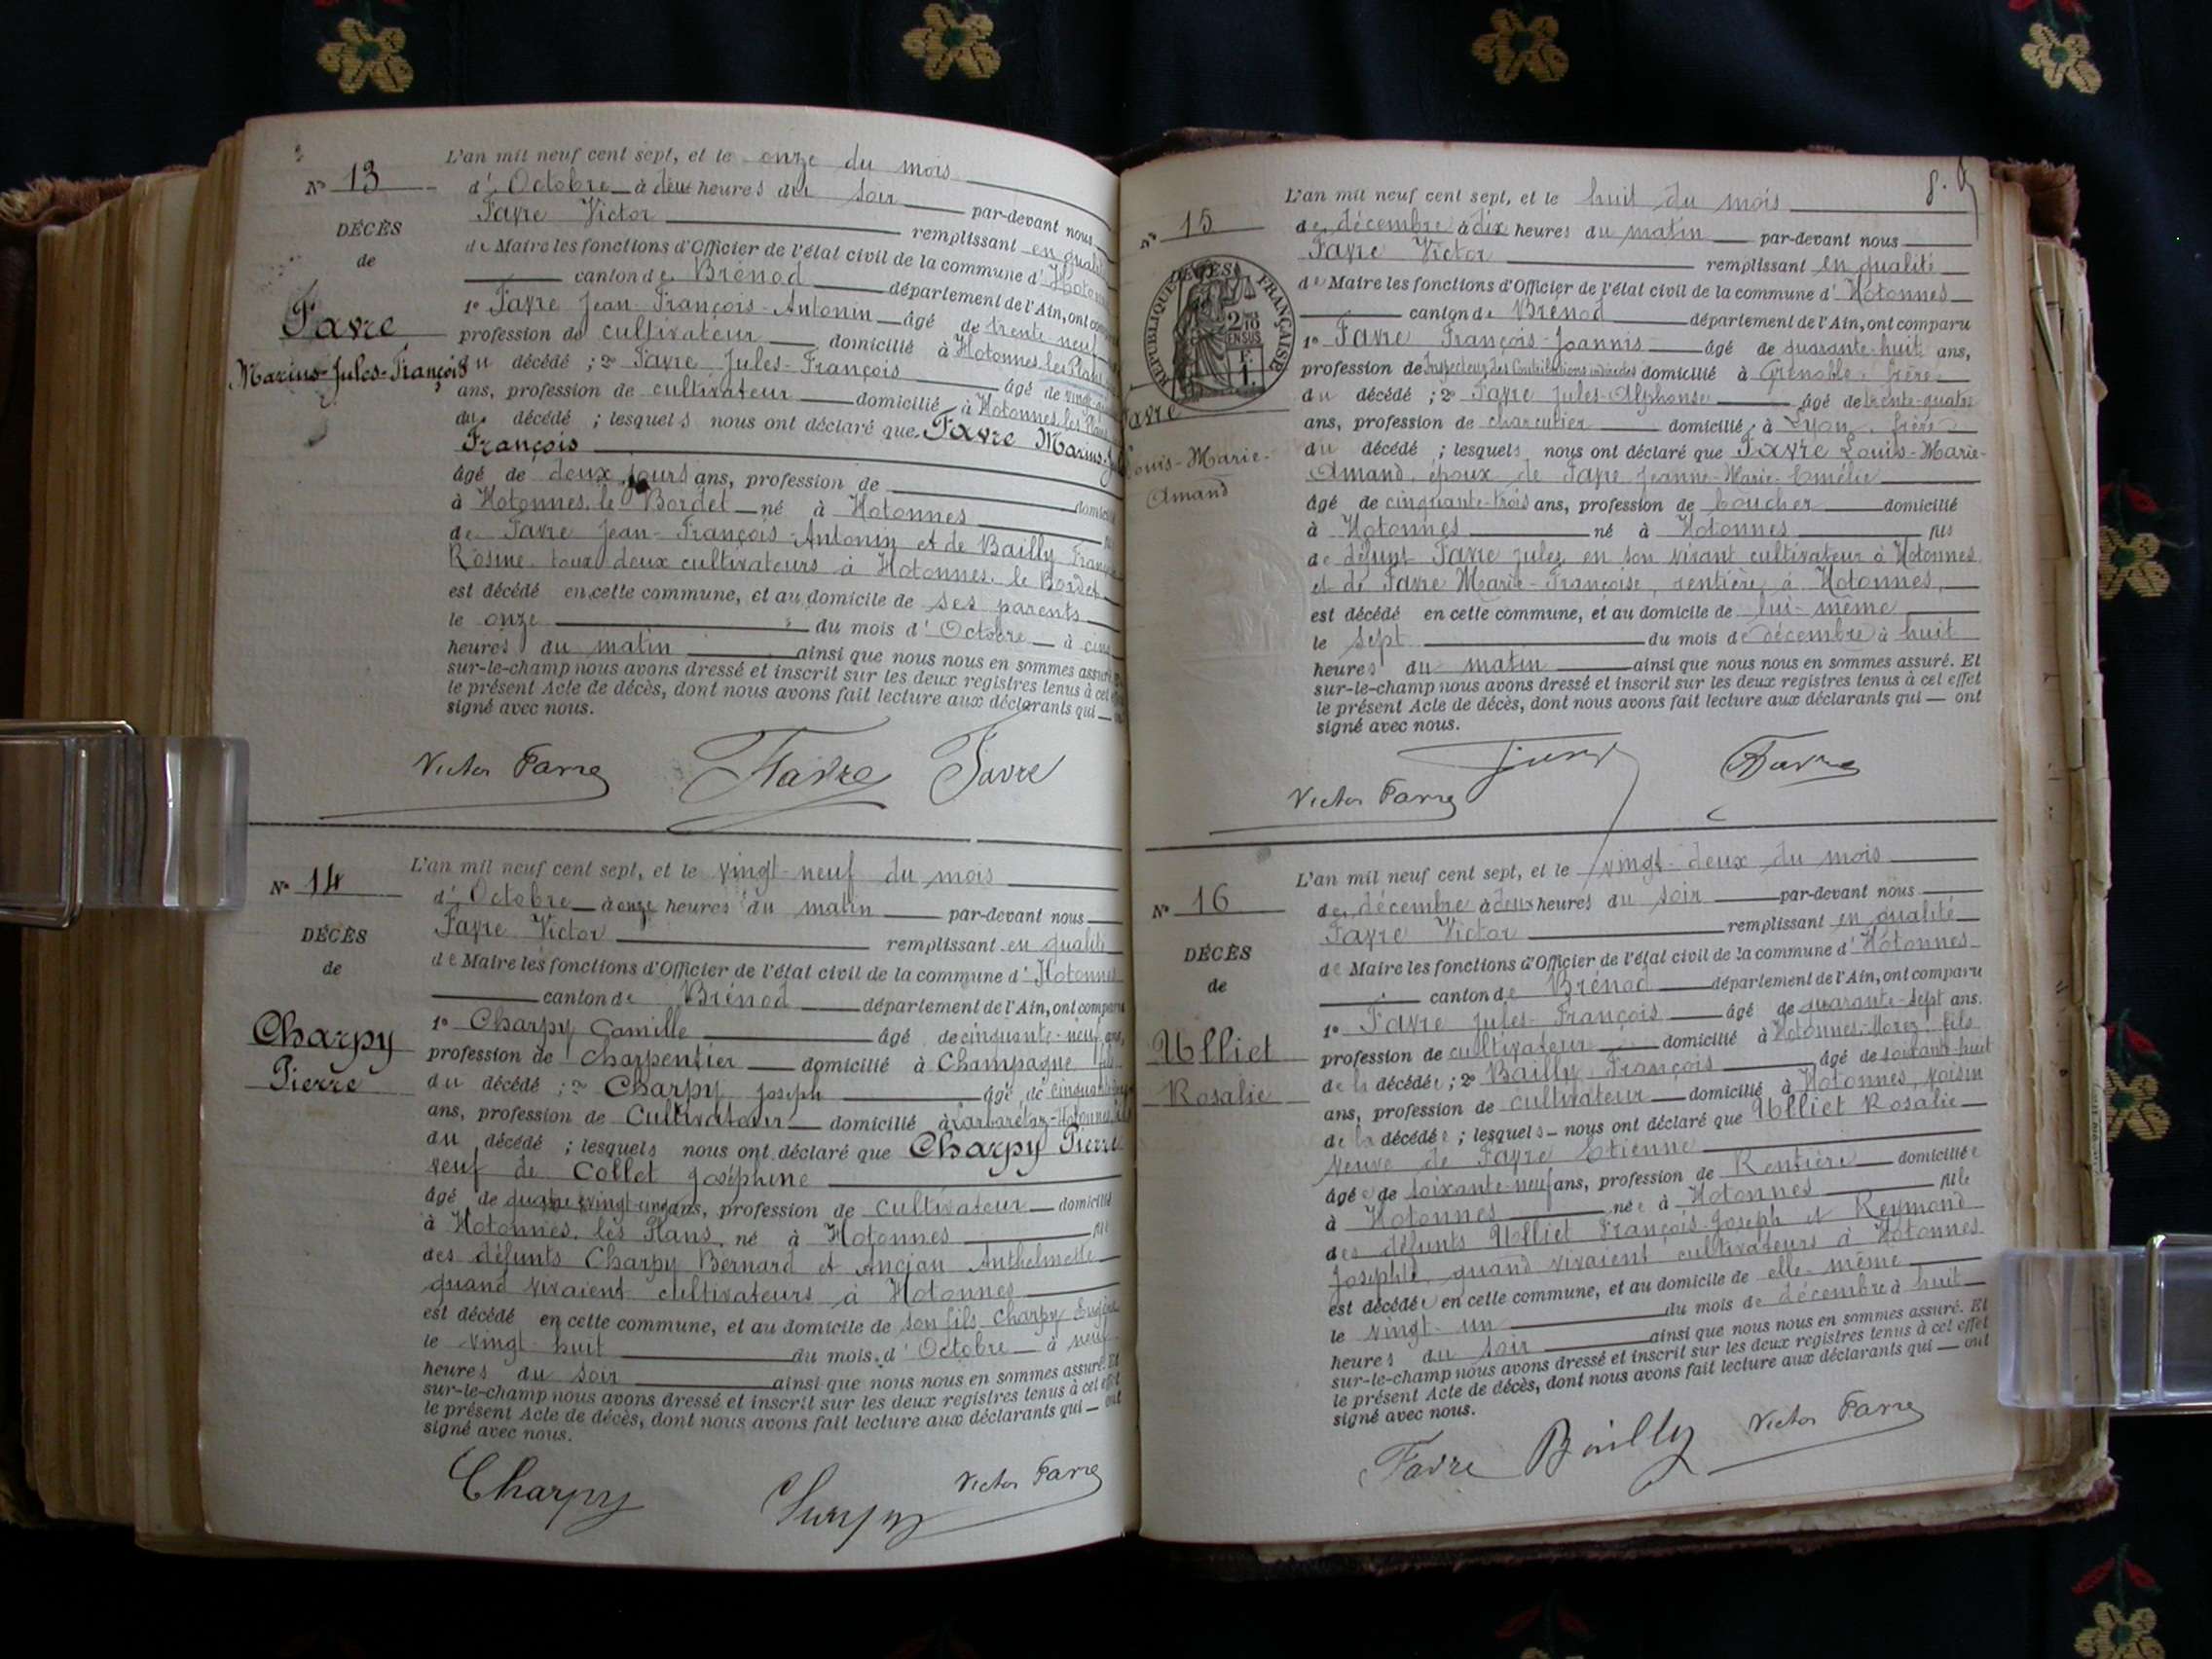 L'an mil neuf cent sept, et le onze du mois
N° 13
d' Octobre à deux heures du soir par-devant nous
Favre Victor remplissant en qualité
DÉCÈS
de Maire les fonctions d'Officier de l'état civil de la commune d' Hotonnes
de
canton de Brénod département de l'Ain, ont comparu
Favre
1° Favre Jean-François-Antonin âgé de trente-neuf
profession de cultivateur domicilié à Hotonnes les Plans
Marius-Jules-François
du décédé ; 2° Favre Jules-François âgé de vingt
ans, profession de cultivateur domicilié à Hotonnes, les Plans
du décédé ; lesquels nous ont déclaré que Favre Marius-Ju
François
âgé de deux jours ans, profession de
à Hotonnes, le Bordet né à Hotonnes
de Favre Jean-François-Antonin et de Bailly Franç
Rosine tous deux cultivateurs à Hotonnes, le Bordet
est décédé en cette commune, et au domicile de ses parents
le onze du mois d' Octobre à cinq
heures du matin ainsi que nous nous en sommes assuré
sur-le-champ nous avons dressé et inscrit sur les deux registres tenus à cet
le présent Acte de décès, dont nous avons fait lecture aux déclarants qui
signé avec nous.
Victor Favre Favre Favre
L'an mil neuf cent sept, et le vingt-neuf du mois
N° 14
d' Octobre à onze heures du matin par-devant nous
Favre Victor remplissant en qualité
DÉCÈS
de Maire les fonctions d'Officier de l'état civil de la commune d' Hotonnes
de
canton de Brénod département de l'Ain, ont comparu
Charpy
1° Charpy Camille âgé de cinquante-neuf ans,
profession de Charpentier domicilié à Champagne fils
Pierre
du décédé ; 2° Charpy Joseph âgé de cinquante
ans, profession de Cultivateur domicilié à
du décédé ; lesquels nous ont déclaré que Charpy Pierre
veuf de Collet Joséphine
âgé de quatre-vingt-cinq ans, profession de cultivateur domicilié
à Hotonnes, les Plans, né à Hotonnes fils
des défunts Charpy Bernard et Ancian Anthelmette
quand vivaient cultivateurs à Hotonnes
est décédé en cette commune, et au domicile de son fils Charpy Eugène
le vingt-huit du mois d' Octobre à neuf
heures du soir ainsi que nous nous en sommes assuré. Et
sur-le-champ nous avons dressé et inscrit sur les deux registres tenus à cet effet
le présent Acte de décès, dont nous avons fait lecture aux déclarants qui ont
signé avec nous.
Charpy Charpy Victor Favre
8.
L'an mil neuf cent sept, et le huit du mois
N° 15
de décembre à dix heures du matin par-devant nous
Favre Victor remplissant en qualité
DÉCÈS
RÉPUBLIQUE FRANÇAISE
2/10 EN SUS
F. 1.
de Maire les fonctions d'Officier de l'état civil de la commune d' Hotonnes
canton de Brénod département de l'Ain, ont comparu
1° Favre François-Joannis âgé de quarante-huit ans,
profession de Inspecteur des Contributions indirectes domicilié à Grenoble, frère
Favre
du décédé ; 2° Favre Jules-Alphonse âgé de trente-quatre
ans, profession de charcutier domicilié à Lyon, frère
Louis-Marie-
du décédé ; lesquels nous ont déclaré que Favre Louis-Marie-
Amand
Amand, époux de Favre Jeanne-Marie-Emélie
âgé de cinquante-trois ans, profession de boucher domicilié
à Hotonnes né à Hotonnes fils
de défunt Favre Jules, en son vivant cultivateur à Hotonnes
et de Favre Marie-Françoise, rentière à Hotonnes,
est décédé en cette commune, et au domicile de lui-même
le sept du mois de décembre à huit
heures du matin ainsi que nous nous en sommes assuré. Et
sur-le-champ nous avons dressé et inscrit sur les deux registres tenus à cet effet
le présent Acte de décès, dont nous avons fait lecture aux déclarants qui ont
signé avec nous.
Victor Favre Favre
L'an mil neuf cent sept, et le vingt-deux du mois
N° 16
de décembre à deux heures du soir par-devant nous
Favre Victor remplissant en qualité
DÉCÈS
de Maire les fonctions d'Officier de l'état civil de la commune d' Hotonnes
de
canton de Brénod département de l'Ain, ont comparu
1° Favre Jules-François âgé de quarante-sept ans.
Ulliet
profession de cultivateur domicilié à Hotonnes fils
Rosalie
de la décédée ; 2° Bailly François âgé de soixante-huit
ans, profession de cultivateur domicilié à Hotonnes, voisin
de la décédée ; lesquels nous ont déclaré que Ulliet Rosalie
veuve de Favre Etienne
âgée de soixante-neuf ans, profession de Rentière domiciliée
à Hotonnes née à Hotonnes fille
des défunts Ulliet François-Joseph et Reymond
Josephte, quand vivaient cultivateurs à Hotonnes
est décédée en cette commune, et au domicile de elle-même
le vingt-un du mois de décembre à huit
heures du soir ainsi que nous nous en sommes assuré. Et
sur-le-champ nous avons dressé et inscrit sur les deux registres tenus à cet effet
le présent Acte de décès, dont nous avons fait lecture aux déclarants qui ont
signé avec nous.
Favre Bailly Victor Favre